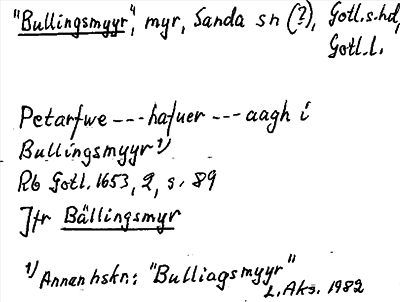 "Bullingsmyyr", myr, Sanda sn (?), Gotl.s.hd,
Gotl.l.
Petarfwe --- hafuer --- aagh i
Bullingsmyyr 1)
Rb Gotl. 1653, 2, s. 89
Jfr Bällingsmyr
1) Annan hskr.: "Bulliagsmyyr"
L. Aks. 1982